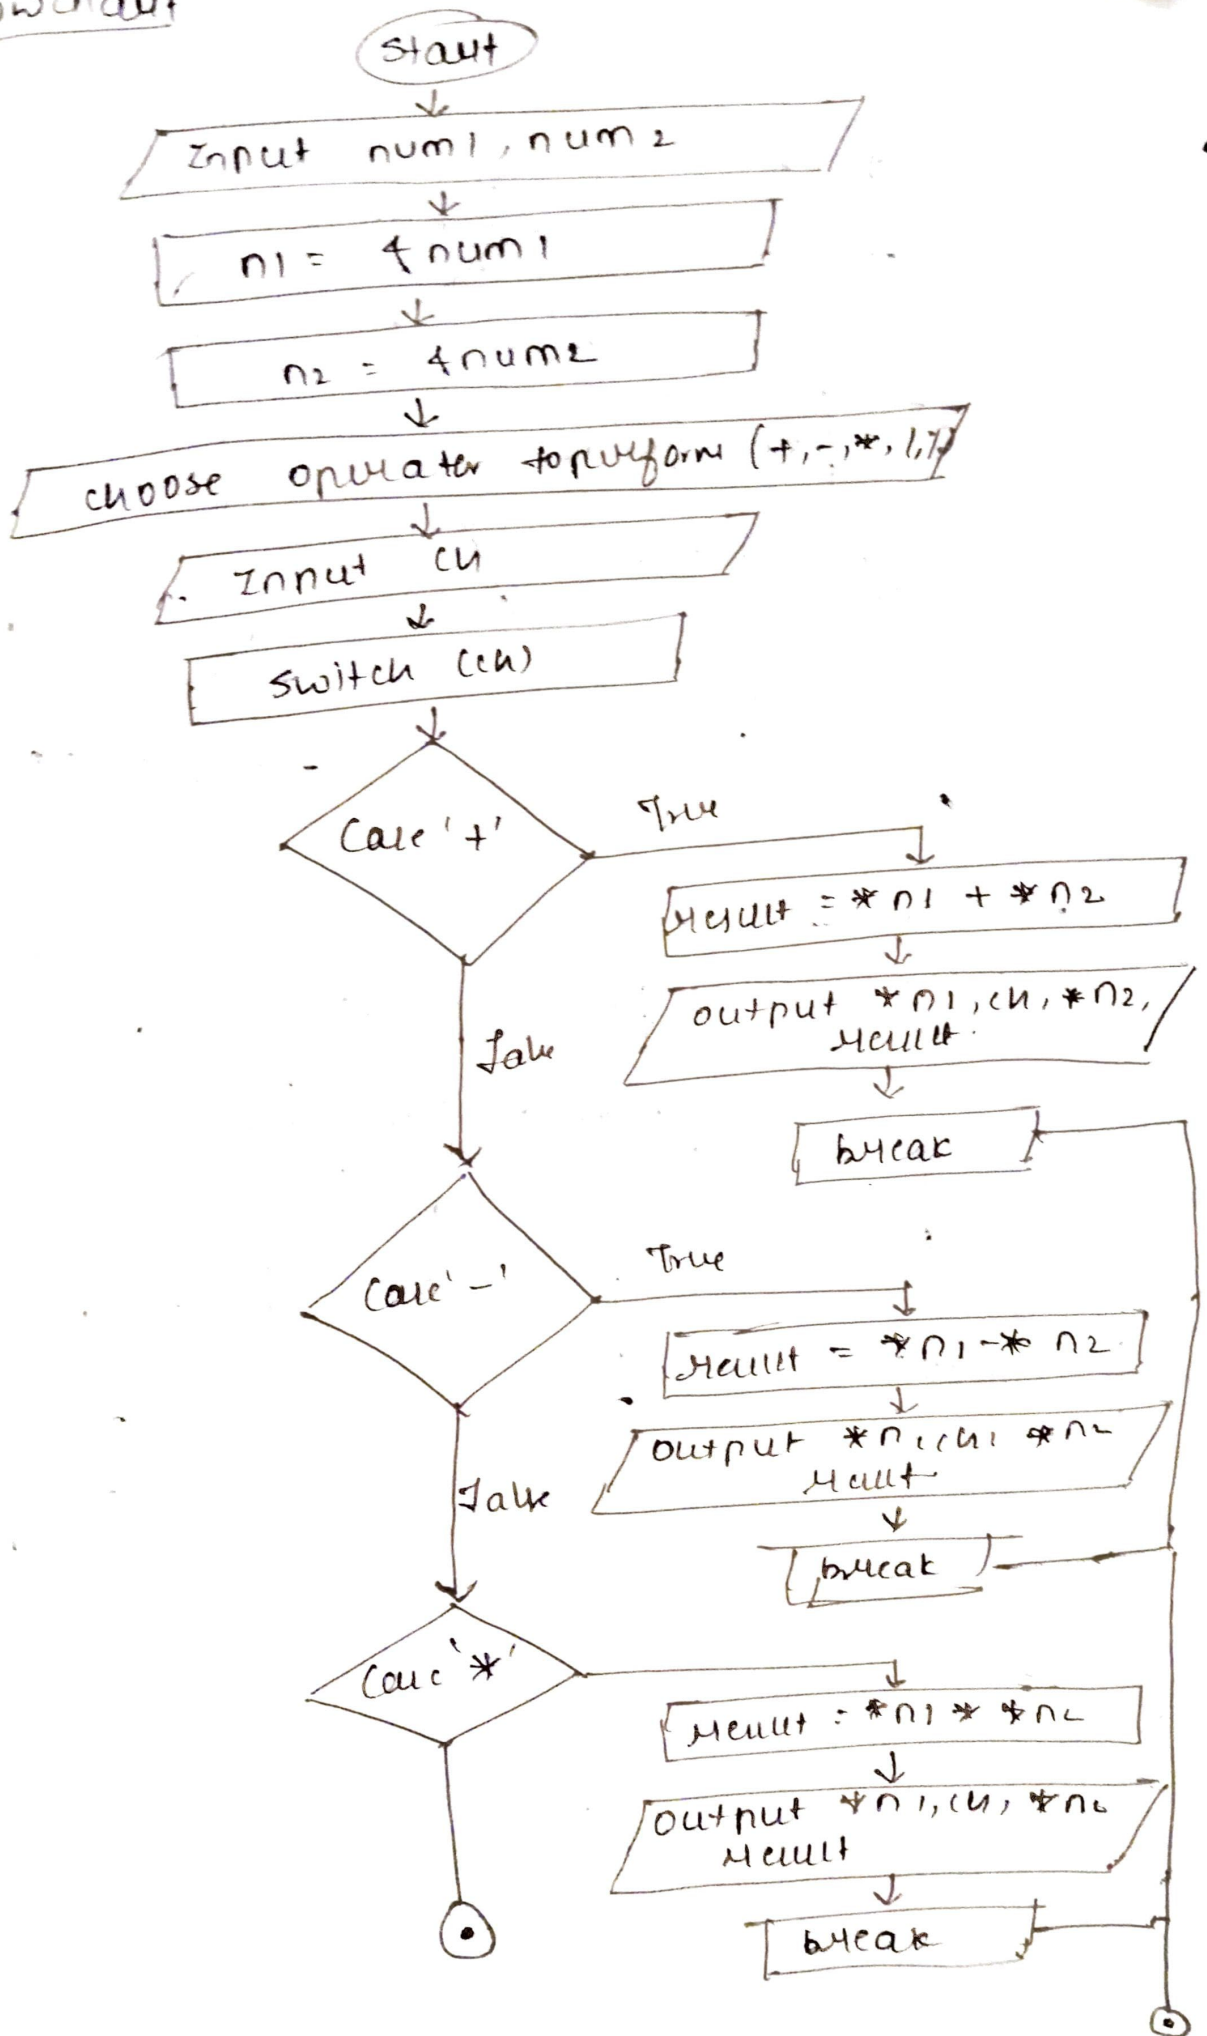 Start
Input num1, num2
n1 = &num1
n2 = &num2
choose operater to perform (+,-,*,/,%)
Input ch
switch (ch)
Case '+'
True
result = *n1 + *n2
output *n1, ch, *n2,
result.
false
break
Case '-'
True
result = *n1 - * n2
output *n1, ch, *n2
result
false
break
Case '*'
result = *n1 * *n2
output *n1, ch, *n2
result
break